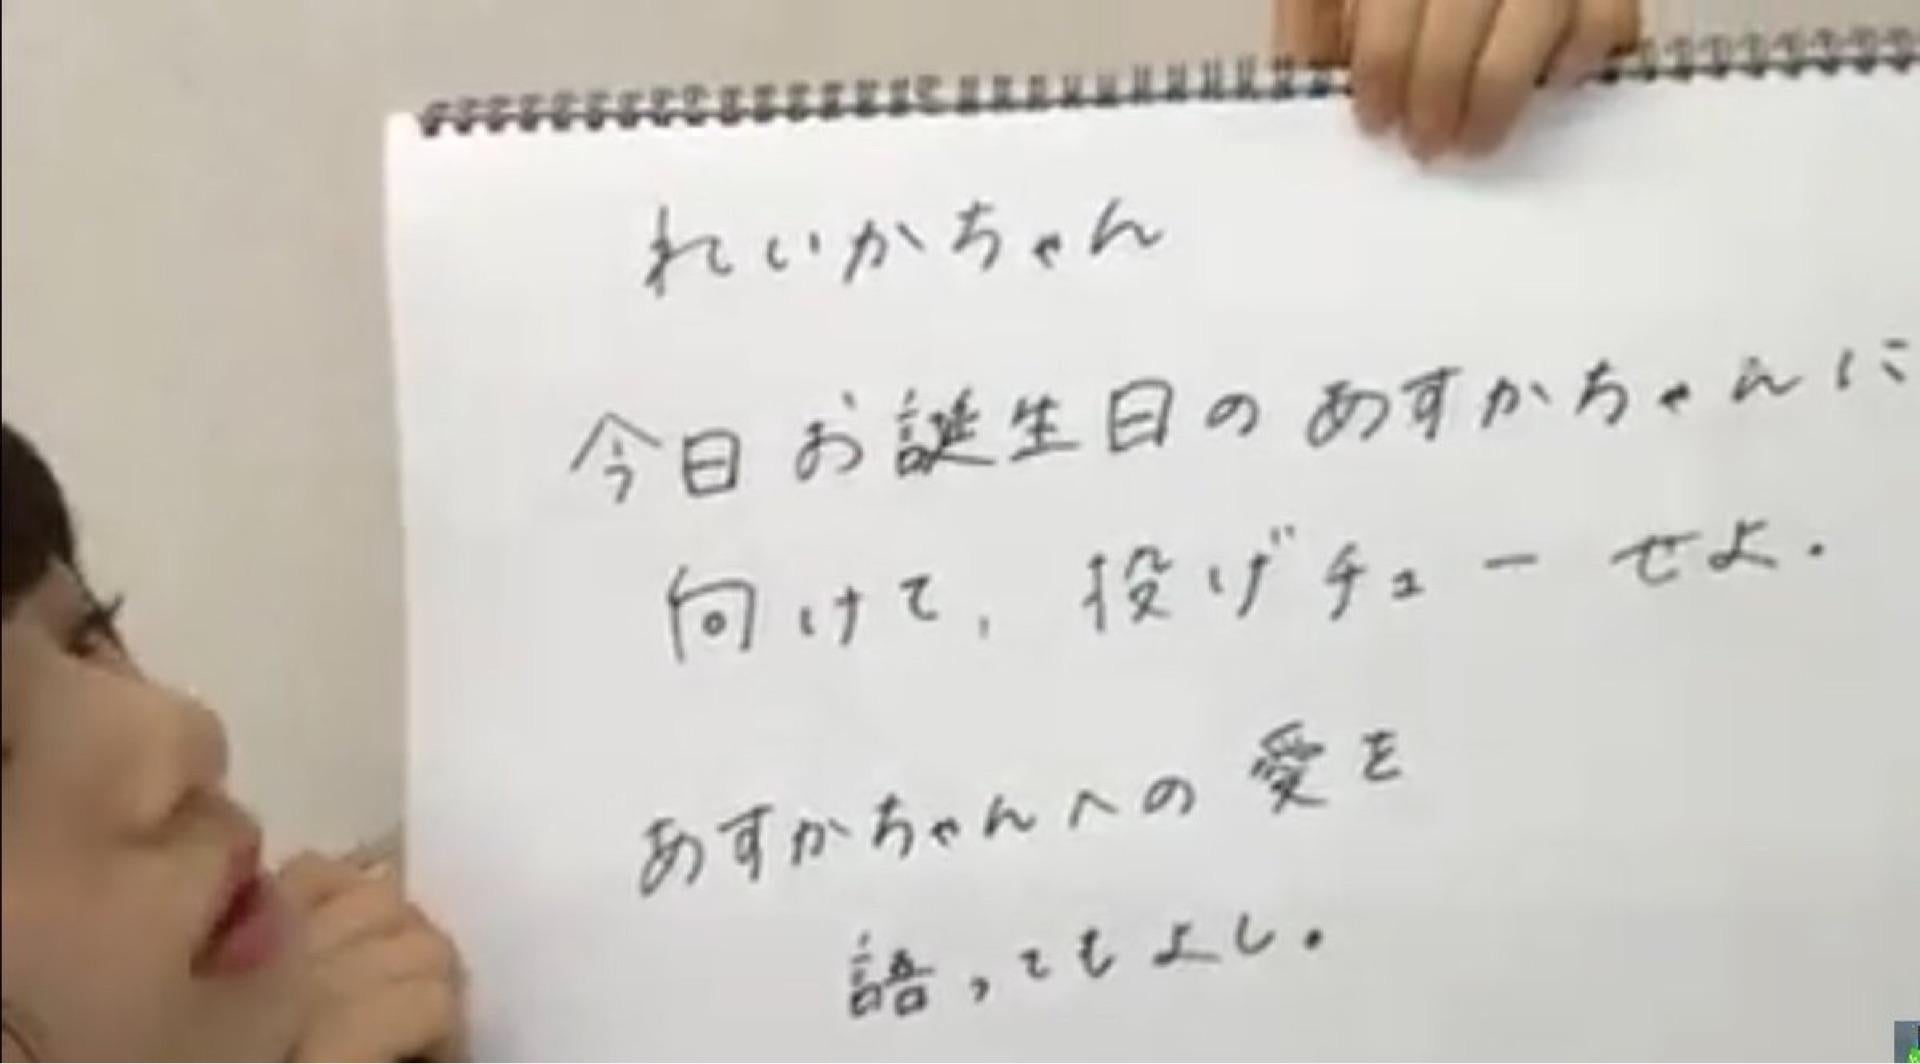 れいかちゃん
今日お誕生日のあすかちゃんに
向けて、投げチューせよ.
あすかちゃんへの愛を
語ってもよし.